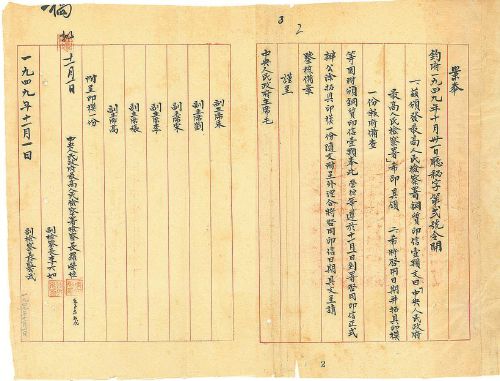 案奉
鈞府一九四九年十月卅一日聽秘字第貳號令開
一、茲頒發最高人民檢察署銅質印信壹顆文曰「中央人民政府
最高人民檢察署」希即具領 二、希將啓用日期并拓具印模
一份報府備查
等因附頒銅質印信壹顆奉此 榮桓等遵於十一月一日到署啓用印信正式
辦公除拓具印模一份隨文附呈外理合將啓用印信日期具文呈請
鑒核備案
謹呈
中央人民政府主席毛
副主席朱
副主席劉
副主席宋
副主席李
副主席張
副主席高
附呈印模一份
十一月一日
中央人民政府最高人民檢察署檢察長羅榮桓
副檢察長李六如
副檢察長藍公武
一九四九年十一月一日
2
3
2